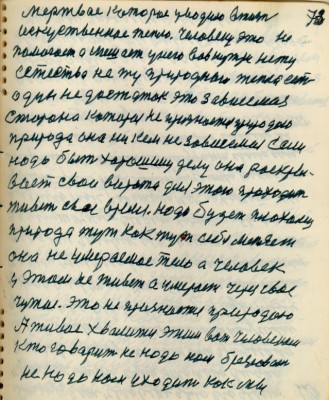 73
мертвое которое уводило в этот
искусственное тело. Человеку это не
помогает а мешает у него вовнутрь нету
естества на ту природный телка ест
один недостаток это зависимая
сторона которая не признается природою
природа она ни кем не зависимая если
надо быть хорошему делу она раскры-
вает свои ворота для этого проходит
живет свое время. Надо будет плохому
природа тут как тут себя меняет
она не умераемое тело а человек
у этом не живет а умерает через свое
чужое. Это не признается природою
А живое хвалится этим вот человеком
Кто говорит не надо нам
не надо нам уходить как мы